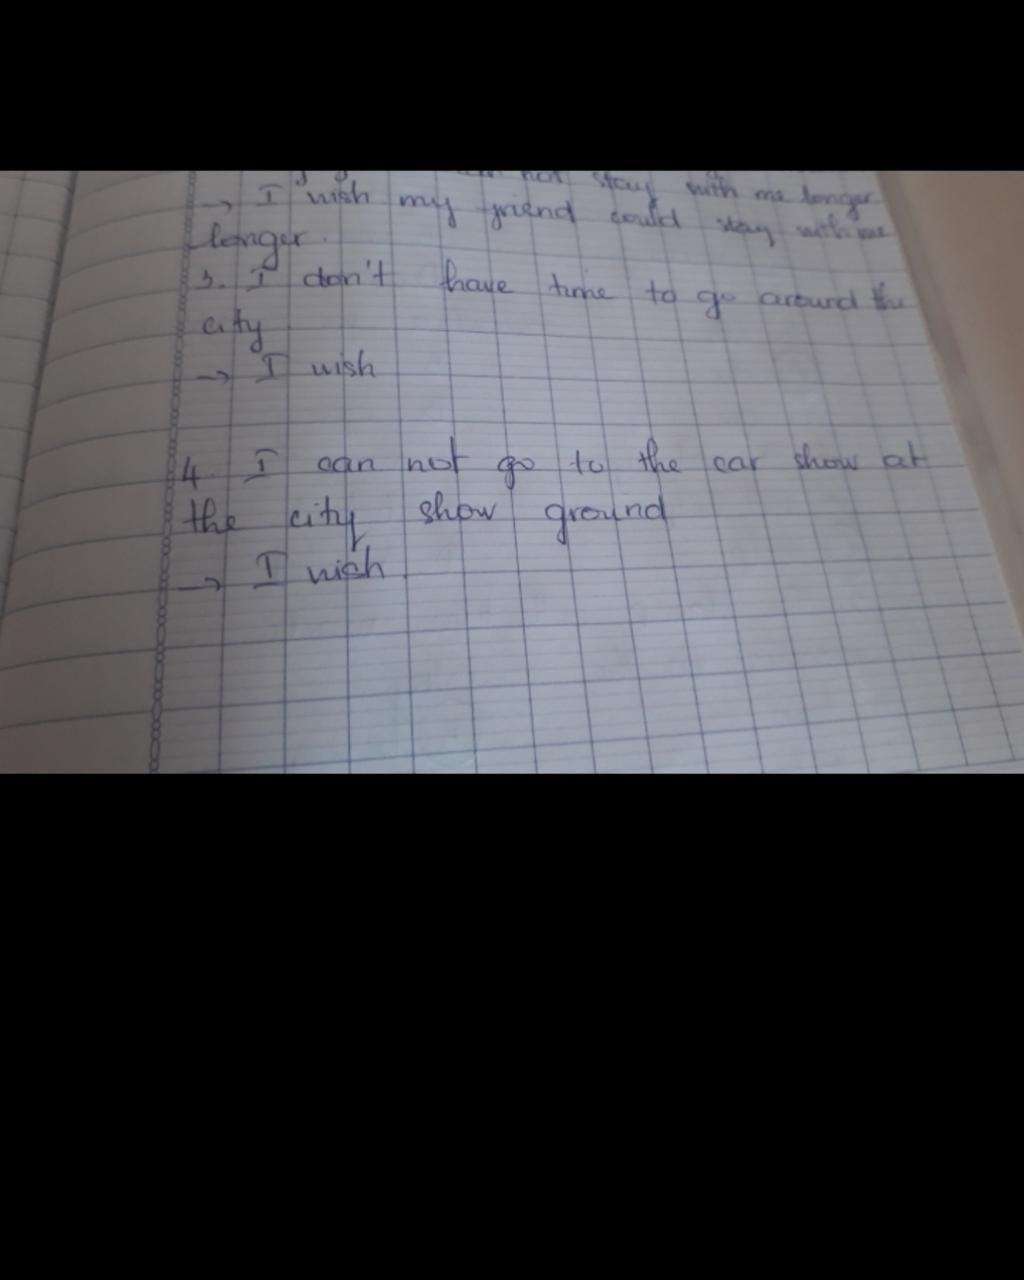 not stay with me longer
→ I wish my friend could stay with me
longer.
3. I don't have time to go around the
city
→ I wish
4. I can not go to the car show at
the city show ground
→ I wish